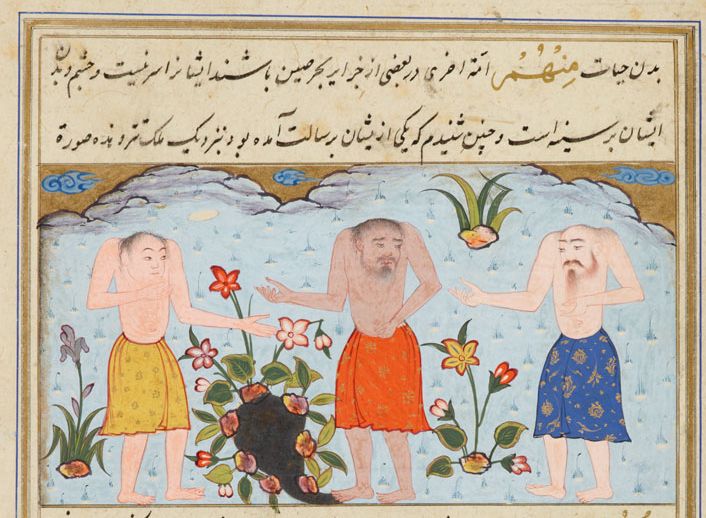 بدن حیات منهم امة اخری در بعضی از جزایر بحر صین باشند ایشانرا سر نیست و چشم و دهن
ایشان بر سینه است و چنین شنیدم که یکی از یشان برسالت آمده بود بنزدیک ملک تتر و بده صورة